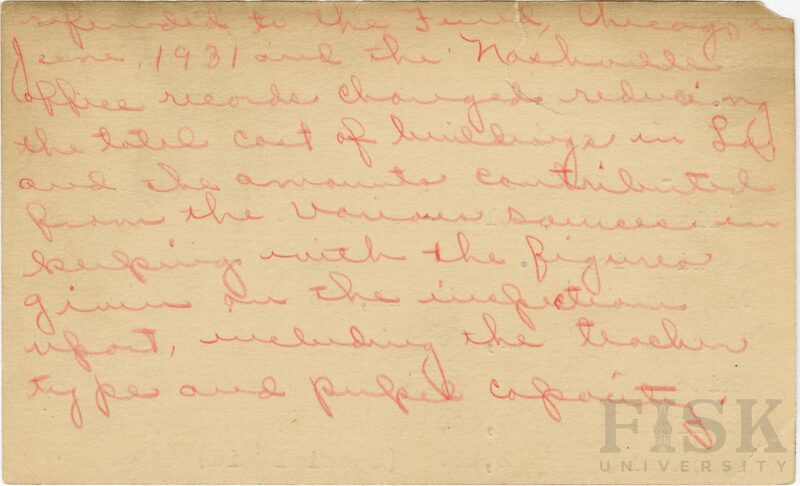 refunded to the Fund, Chicago in
June, 1931 and the Nashville
office records changed reducing
the total cost of buildings in La
and the amounts contributed
from the various sources in
keeping with the figures
given on the inspection
report, including the teacher
type and pupil capacity.
FISK
UNIVERSITY